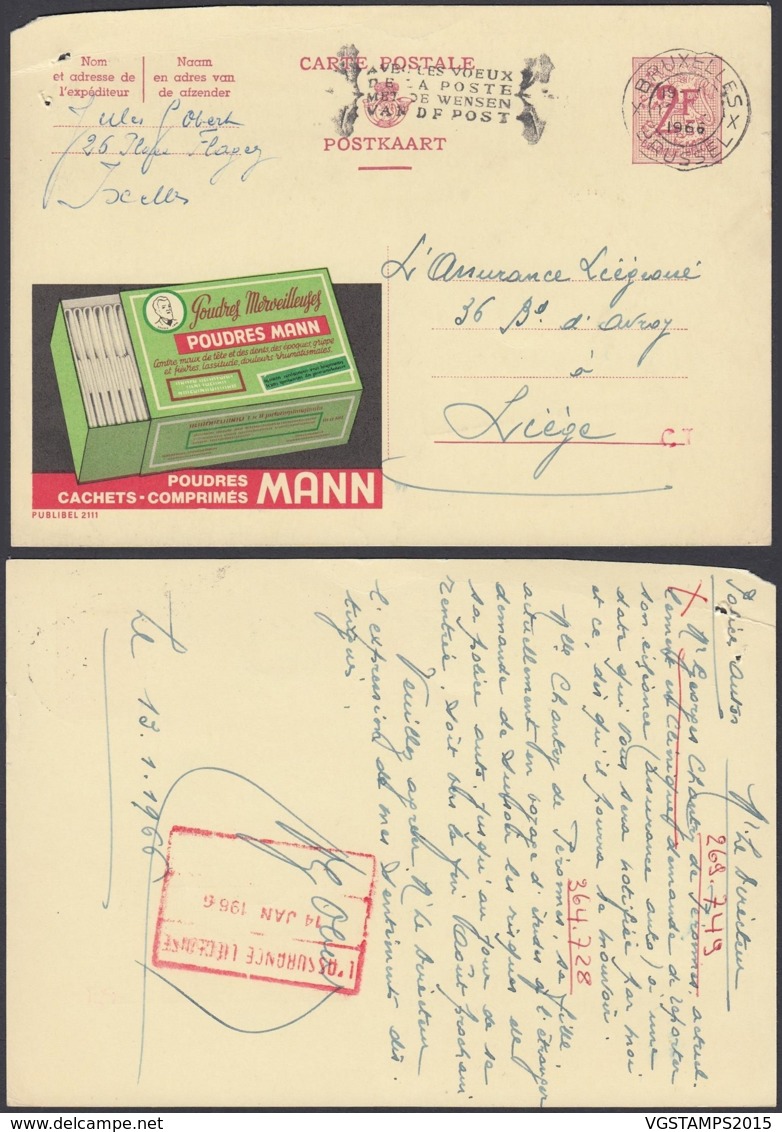 Nom
et adresse de
l'expéditeur
Naam
en adres van
de afzender
CARTE POSTALE
POSTKAART
AVEC LES VOEUX
DE LA POSTE
MET DE WENSEN
VAN DE POST
2F
BRUXELLES X
1966
BRUSSEL X
Jules Gobert
26 Place Flagey
Ixelles
L'Assurance Liégeoise
36 Bd d'Avroy
à
Liège
C.T
Poudres Merveilleuses
POUDRES MANN
Contre maux de tête et des dents, des époques, grippe
et fièvres, lassitude, douleurs rhumatismales.
POUDRES
CACHETS-COMPRIMÉS MANN
PUBLIBEL 2111
Polices autos
Mr Le Directeur
269.749
Mr Georges Chantry de Péronnes, actuel-
lement en clinique, demande de reporter
son échéance (assurance auto) à une
date qui vous sera notifiée par moi
et ce, dès qu'il pourra se mouvoir.
364.728
Melle Chantry de Péronnes, sa fille
actuellement en voyage d'études à l'étranger
demande de les risques de
sa police auto, jusqu'au jour de sa
rentrée, soit vers la fin Août prochain
Veuillez agréer, Mr Le Directeur
l'expression de mes sentiments dis-
tingués.
L'ASSURANCE LIÉGEOISE
14 JAN 1966
Le 13.1.1966
VGSTAMPS2015